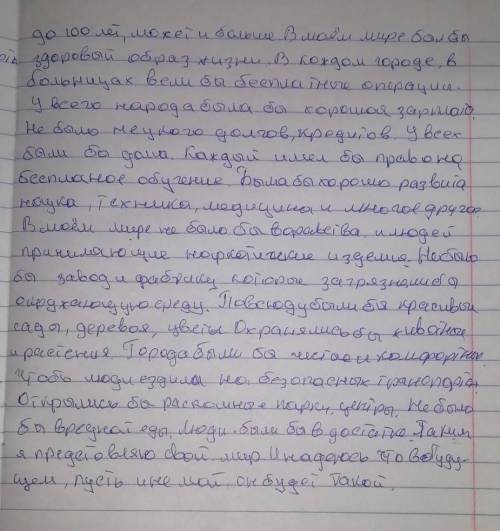 до 100 лет, может и больше. В моём мире был бы
здоровый образ жизни. В каждом городе, в
больницах вели бы бесплатные операции.
У всего народа была бы хорошая зарплат.
Не было не
долгов, кредитов. У всех
были бо дома. Каждый имел бы право на
бесплатное обучение. Была бы хорошо развита
наука, техника, медицина и многое другое
В моём мире не было бы воравства и людей
принимающие наркотические изделия. Не было
бы завод и фабрику которые загрязняли бы
окружающую среду. Повсюду были бы красивый
сады, деревоя, цветы. Охранялись бы животные
и растения. Города были бы чистое и комфортные.
Чтобы люди ездила на безопасных транспорта.
Открылись бы раскошные парки, центры. Не было
бы вредной еды. Люди были бы в достатке. Таким
я предстовляю свой мир. И надеюсь что в буду-
щем, пусть и не мой, он будет такой.